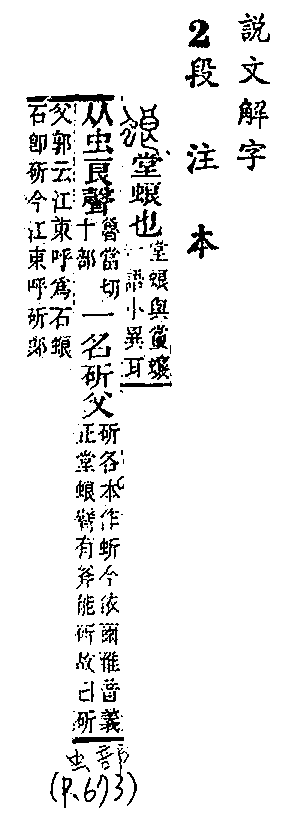 說文解字
2段注本
蜋堂蜋也堂蜋與蟷蠰
一語小異耳
从虫良聲魯當切
十部
一名斫父斫各本作蚚今依爾雅音義
正堂蜋臂有斧能斫故曰斫
父郭云江東呼爲石蜋
石卽斫今江東呼斫郎
虫部
(P.673)